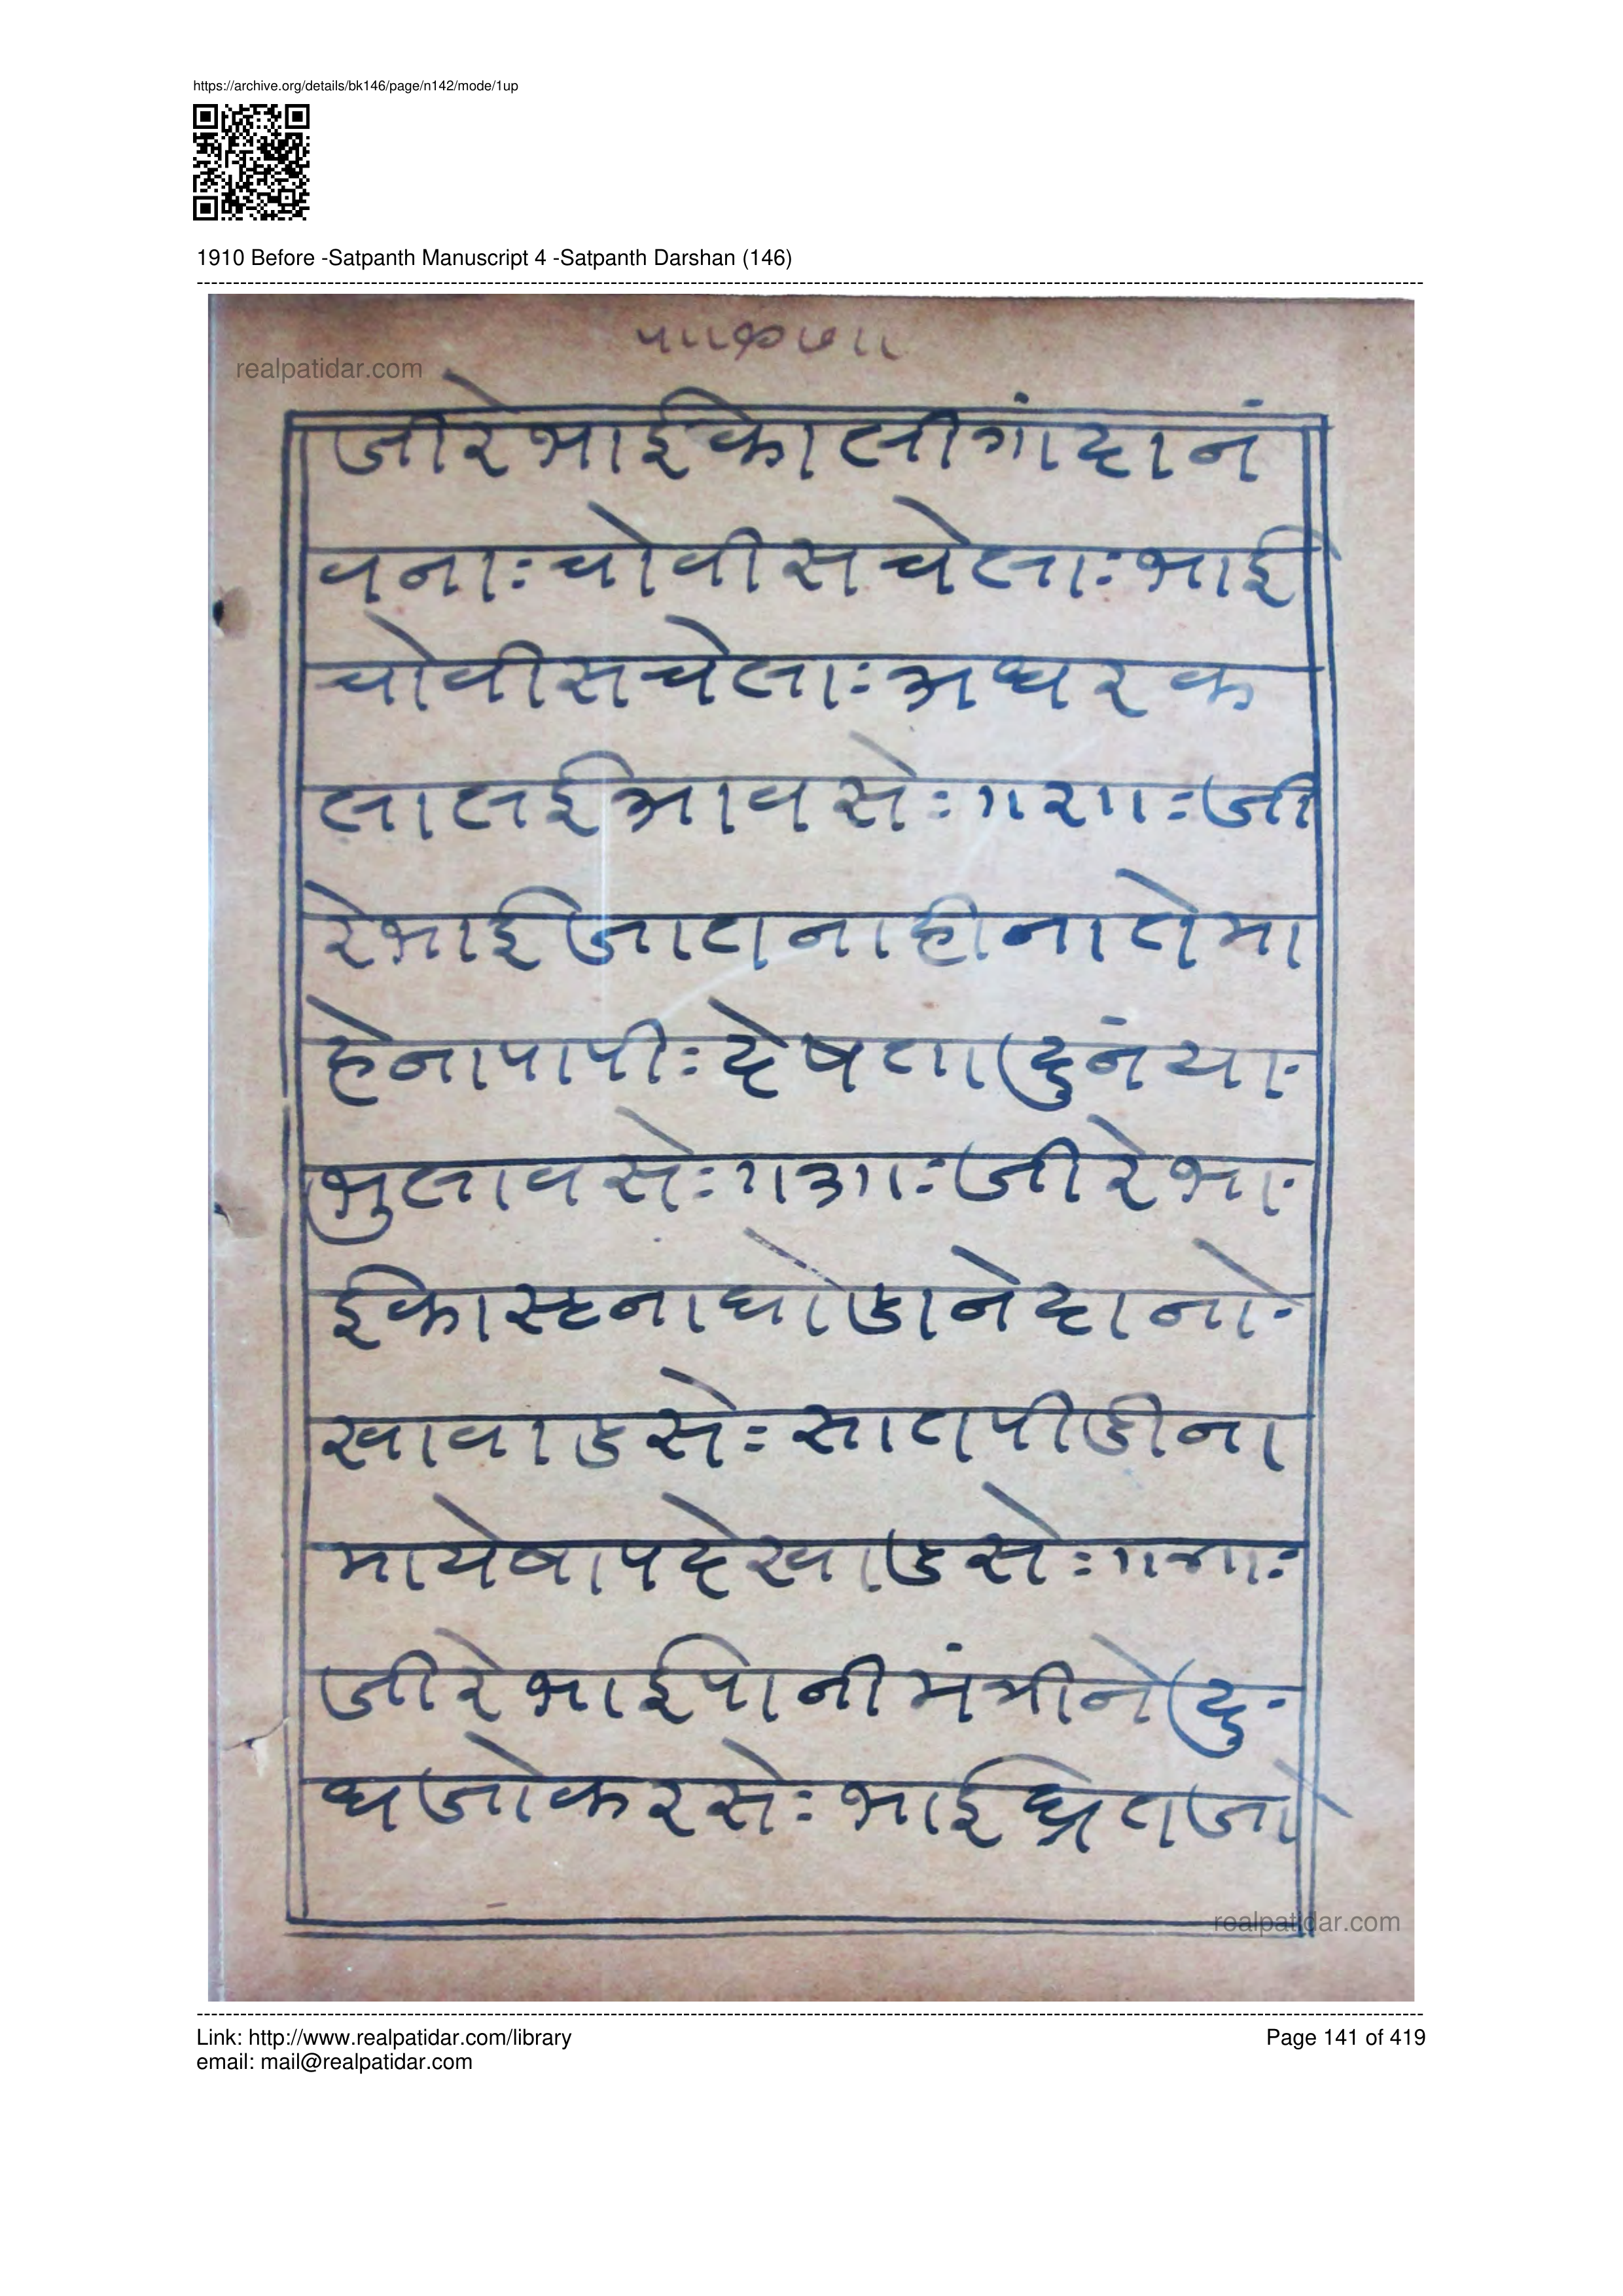 https://archive.org/details/bk146/page/n142/mode/1up
1910 Before -Satpanth Manuscript 4 -Satpanth Darshan (146)
realpatidar.com
जीरेभाईकालीगांदानं
वनाःचोवीसचेलाःभाई
चोवीसचेलाःअधरक
लालईआवसेः॥२॥ःजी
रेभाईजातनाहीनातेमा
हेनापापीःदेषतादुनंयाः
भुलावसेः॥३॥ःजीरेभाः
ईकास्टनाघोडानेदानोः
खावाडसेःसातपीडीना
मायेबापदेखाडसेः॥४॥ः
जीरेभाईपोनीमंत्रीनेदुः
धजोकरसेःभाईध्रीतजो
realpatidar.com
Link: http://www.realpatidar.com/library
Page 141 of 419
email: mail@realpatidar.com